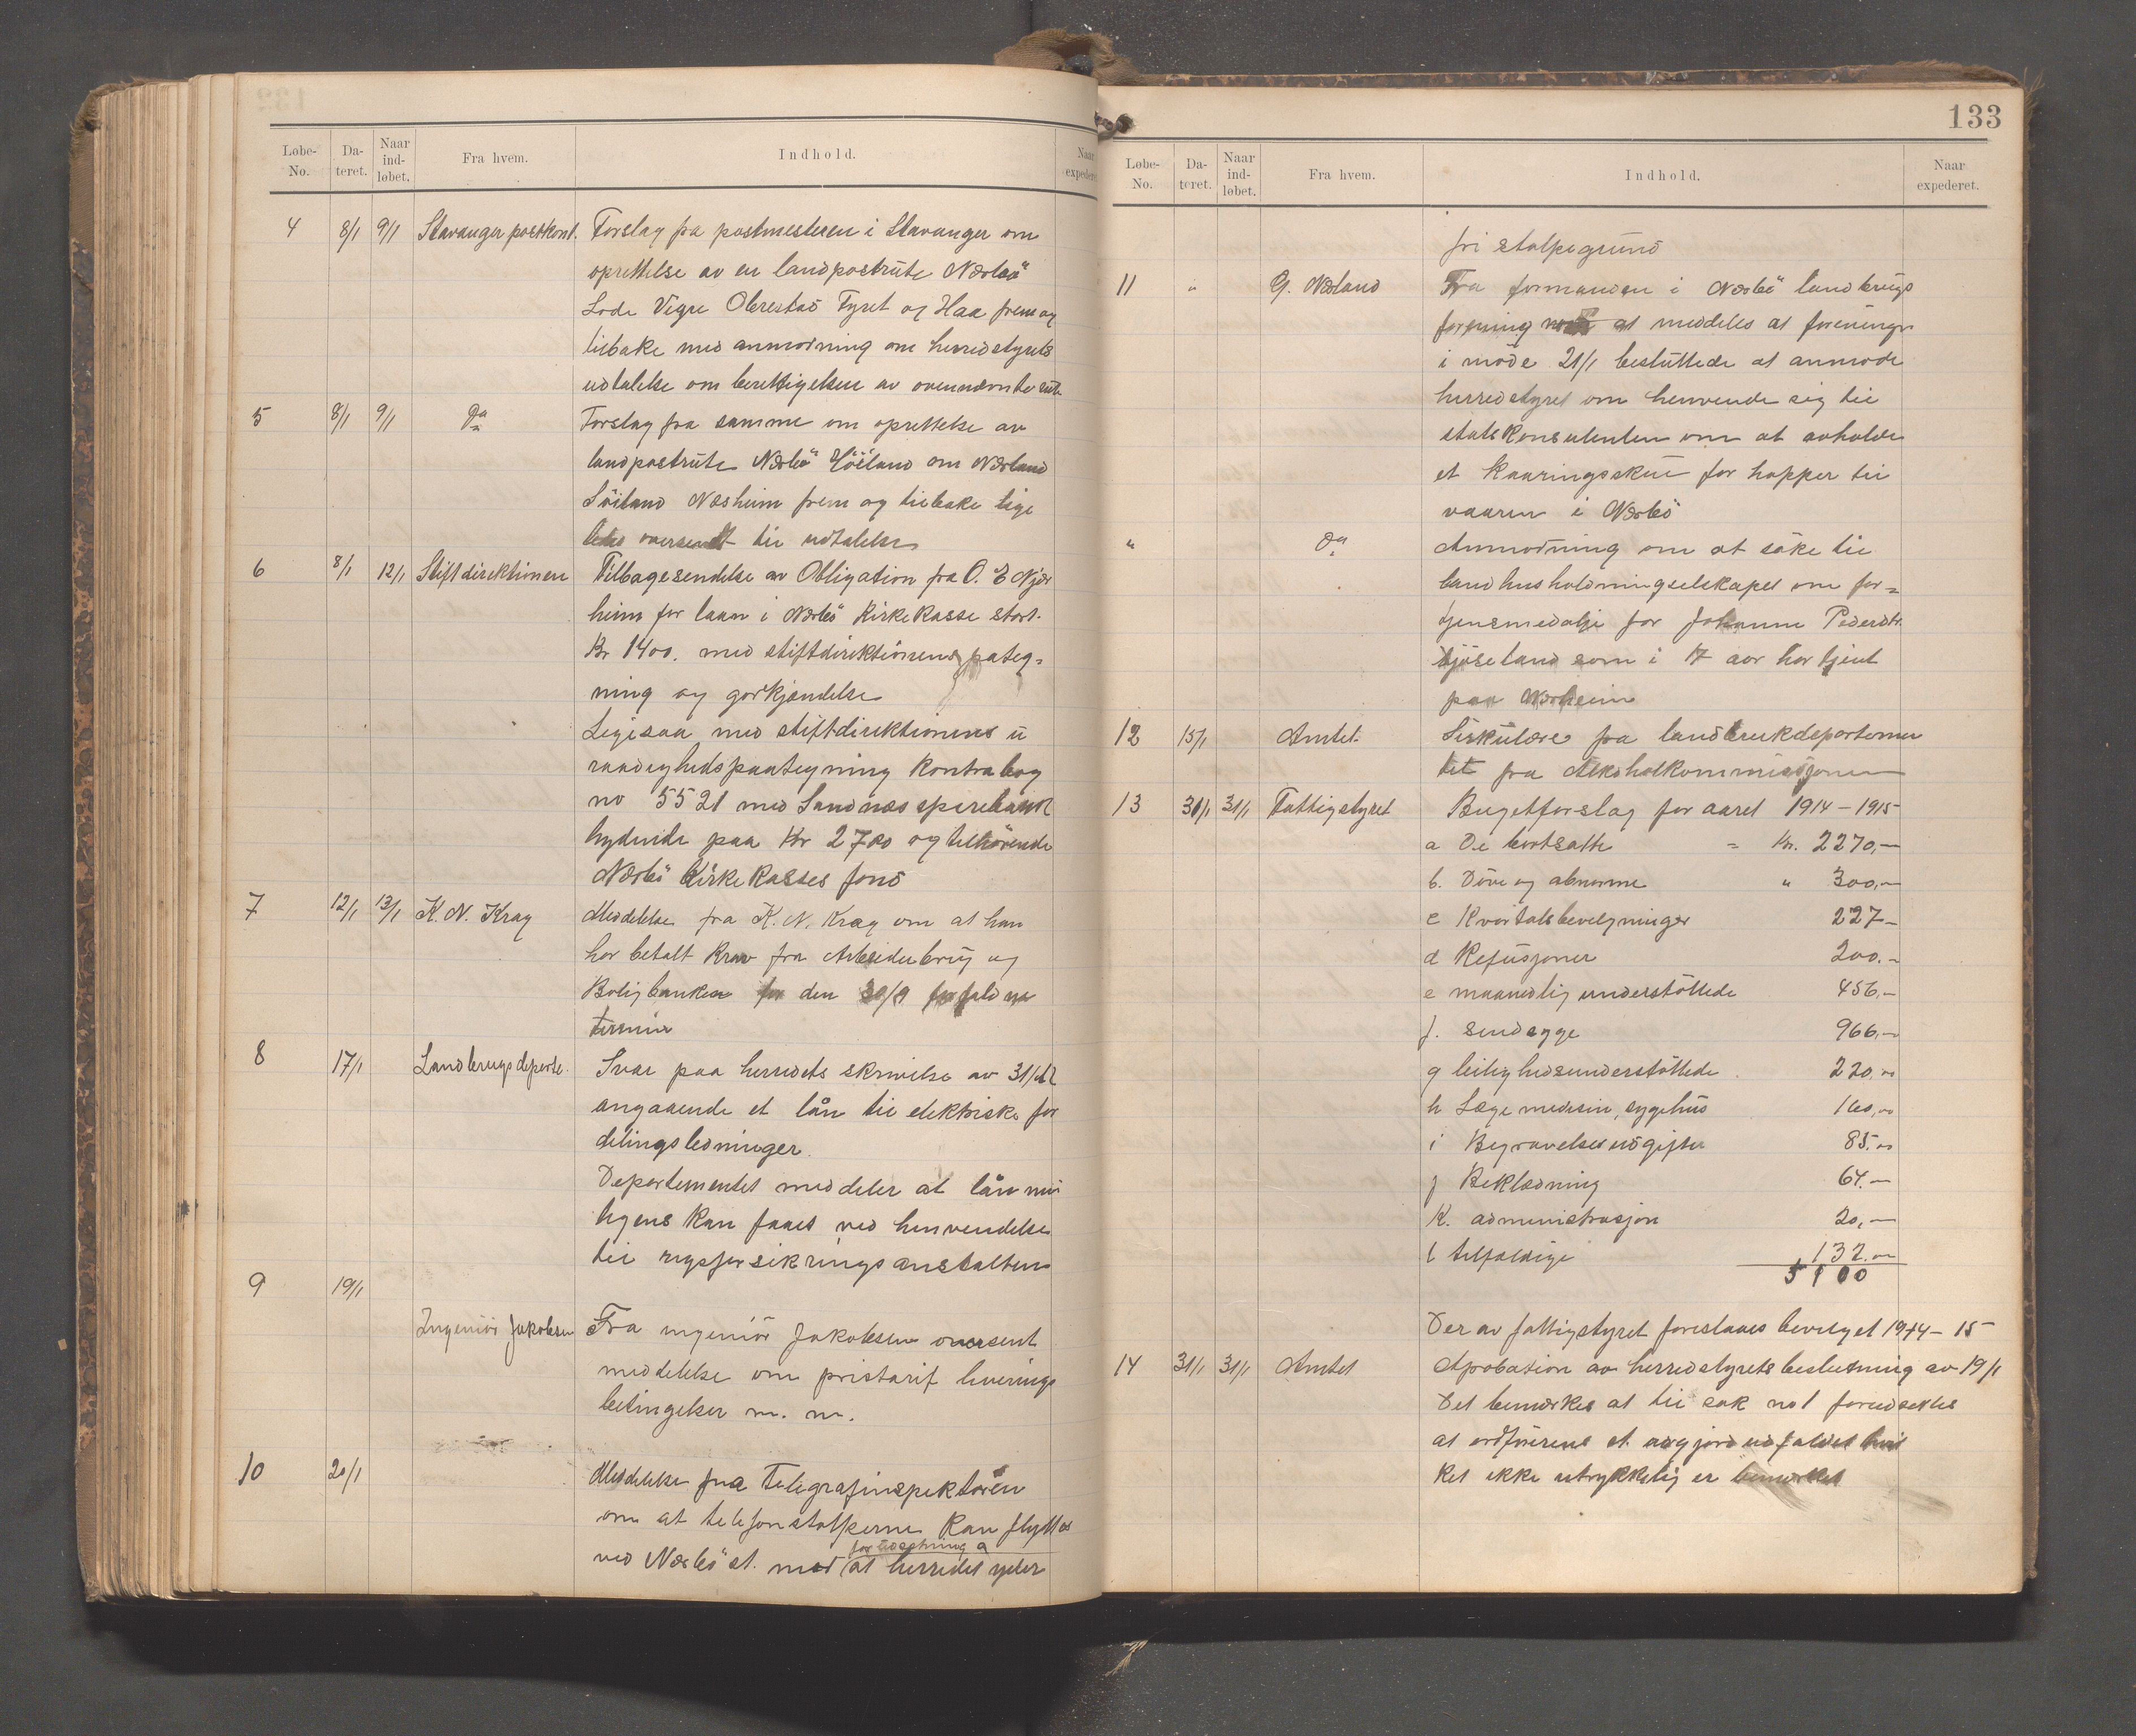 Løbe-No. Da-teret. Naar ind-løbet. Fra hvem. Indhold. Naar expederet
4 8/1 9/1 Stavanger postkont. Forslag fra postmesteren i Stavanger om
oprettelse av en landpostrute Nærbö
Lode Vigre Obrestad Fyret og Haa frem og
tilbake med anmodning om herredstyrets
udtalelse om berettigelsen av ovennævnte rute
5 8/1 9/1 Do Forslag fra samme om oprettelse av
landpostrute Nærbö Höiland om Nærland
Söiland Næsheim frem og tilbake lige
ledes oversendt til udtalelse
6 8/1 12/1 Stiftdirektionen Tilbagesendelse av Obligation fra O. E Njær
heim for laan i Nærbö Kirkekasse stort.
Kr 1400. med stiftdirektionens pateg-
ning og godkjendelse
Ligesaa med stiftdirektionens u
raadighedspaategning Kontrabog
no 5521 med Sandnæs sparebank
lydende paa Kr 2700 og tilhörende
Nærbö Kirkekasses fond
7 12/1 13/1 K. N. Krag Meddelelse fra K. N. Krag om at han
har betalt Krav fra Arbeiderbrug og
Boligbanken for den 30/9 forfaldne
termin
8 17/1 Landbrugsdeparte. Svar paa herredets skrivelse av 31/12
angaaende et lån til elektriske for
delingsledninger.
Departementet meddeler at lån mu
ligens kan faaes ved henvendelse
til rigsforsikringsanstalten
9 19/1
Ingeniör Jakobsen Fra ingeniör Jakobsen oversent
meddelelse om pristarif leverings
betingelser m. m.
10 20/1 Meddelelse fra Telegrafinspektören
om at telefonstolperne kan flyttes
forudsætning a
ved Nærbö st. med at herredet yder
133
Løbe-No. Da-teret. Naar ind-løbet. Fra hvem. Indhold. Naar expederet.
fri stolpegrund
11 " G. Nærland Fra formanden i Nærbö landbrugs
forening at meddeles at foreningen
i möde 21/1 besluttede at anmode
herredstyret om henvende sig til
statskonsulenten om at avholde
et kaaringsskue for hopper til
vaaren i Nærbö
" Do Anmodning om at söke til
landhusholdningselskapet om for-
tjensmedalje for Johanne Pedersdtr.
Gjöseland som i 17 aar har tjent
paa Nærheim
12 15/1 Amtet. Sirkulære fra landbrukdepartemen
tet fra Alkoholkommissjonen
13 30/1 31/1 Fattigstyret Bugetforslag for aaret 1914-1915
a De bortsatte - Kr. 2270,-
b. Döve og abnorme " 300,-
c Kvartalsbevilgninger 227-
d Refusjoner 200.-
e maanedlig understöttede 456,-
f. sindsyge 966,-
g leilighedsunderstöttede 220,-
h Læge medesin, sygehus 160,-
i Begravelsesudgifter 85.-
j Beklædning 64.-
k. administrasjon 20,-
l tilfældige 132.-
5100
Der av fattigstyret foreslaaes bevilget 1914-15
14 31/1 31/1 Amtet Aprobation av herredstyrets beslutning av 19/1
Det bemærkes at til sak no 1 forudsettes
at ordförerens st. udfaldet hvil
ket ikke utrykkelig er bemærket